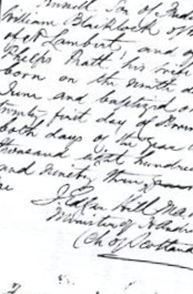 Son of
William Blacklock
of A Lambert, and
Phelps Pratt his wife
born on the ninth d
June and baptized o
twenty first day of
both days of the year
thousand eight hundred
and ninety three
J Edgar Hill M.A.
Minister of
Ch of Scotland